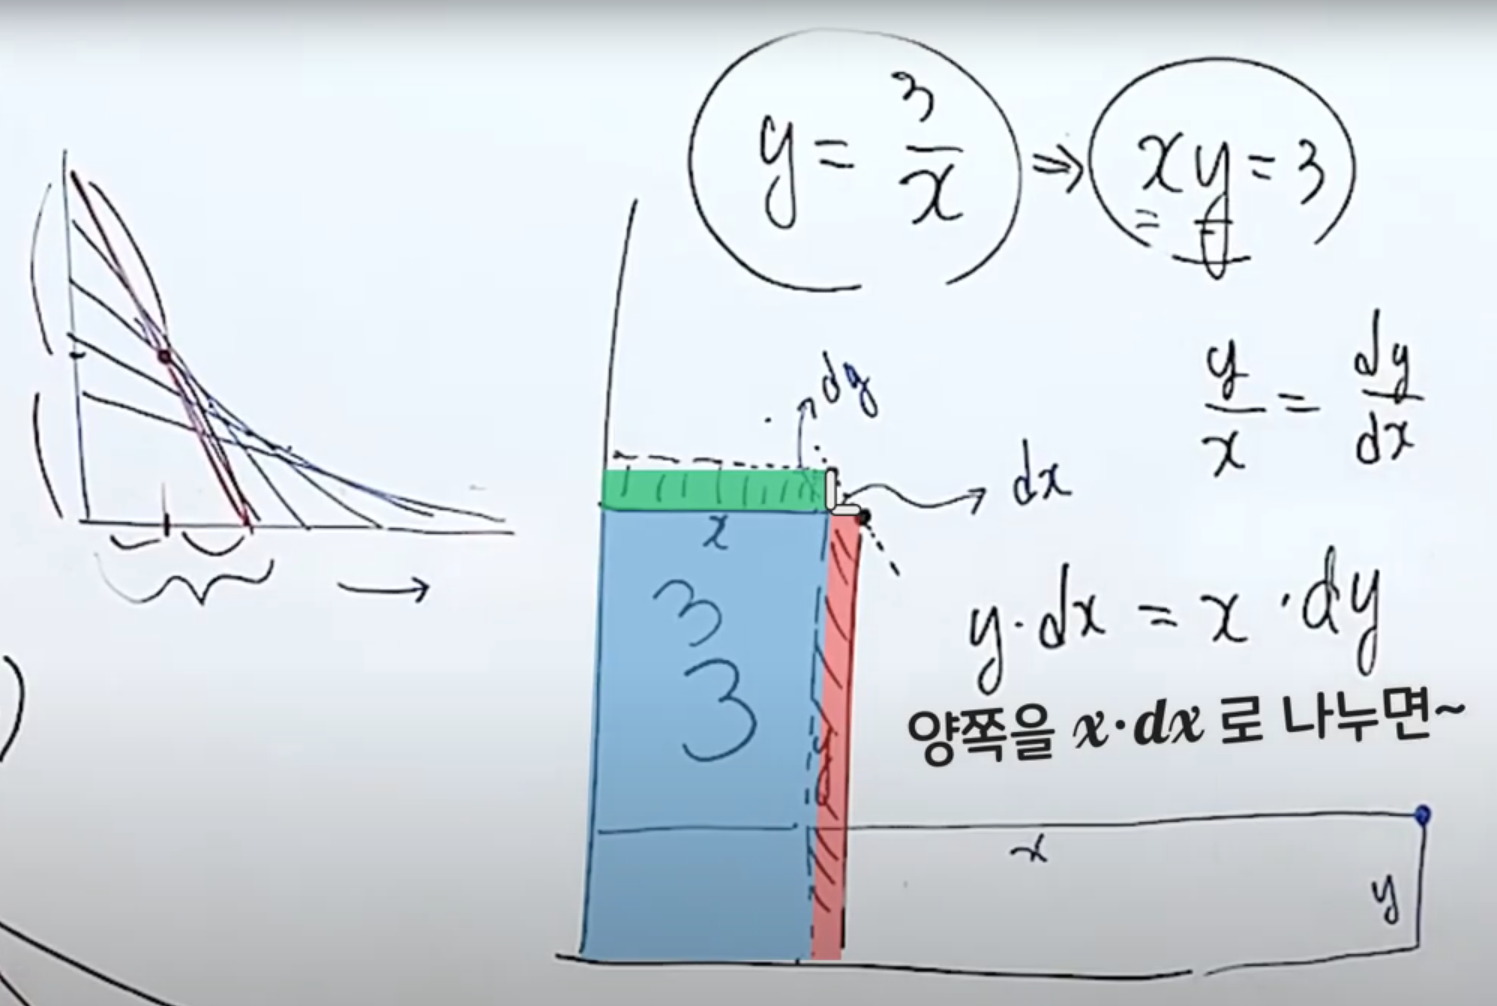 y = 3/x ⇒ xy = 3
y/x = dy/dx
dy
dx
x
3
y·dx = x·dy
3
양쪽을 x·dx 로 나누면~
x
y